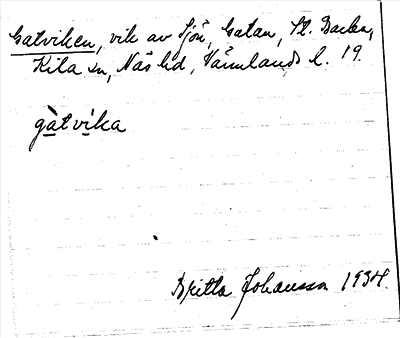 Gatviken, vik av Sjön, Gatan, St. Backa,
Kila sn, Näs hd, Värmlands l. 19.
gàtvika
Britta Johansson 1934.